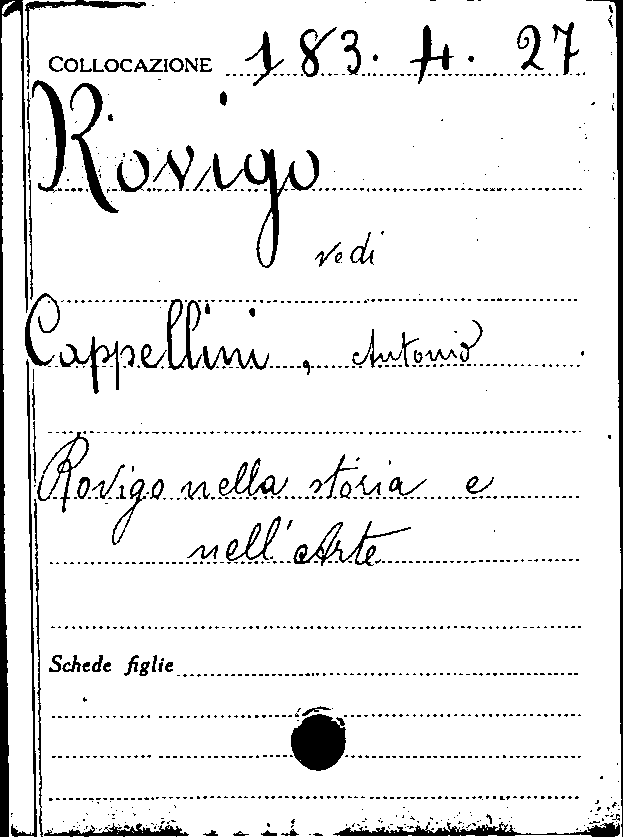 COLLOCAZIONE 183. 4. 27
Rovigo
vedi
Cappellini, Antonio
Rovigo nella storia e
nell'Arte
Schede figlie